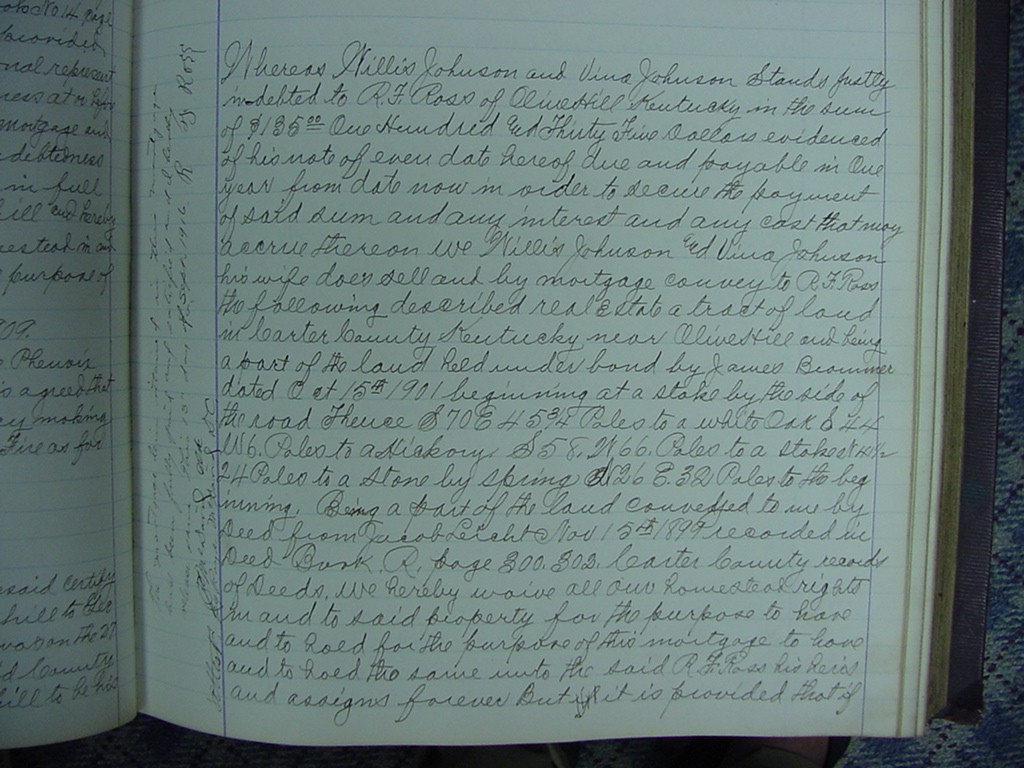 Whereas Willis Johnson and Vina Johnson Stands justly
in-debted to R.F. Ross of OliveHill Kentucky in the sum
of $135.00 One Hundred and Thirty Five Dollars evidenced
of his note of even date hereof due and payable in One
year from date now in order to secure the payment
of said sum and any interest and any cost that may
accrue thereon we Willis Johnson and Vina Johnson
his wife does sell and by mortgage convey to R.F. Ross
the following described real Estate a tract of land
in Carter County Kentucky near OliveHill and being
a part of the land held under bond by James Brammer
dated Oct 15th 1901 beginning at a stake by the side of
the road Thence S 70 E 45 3/4 Poles to a white Oak S 44
W6. Poles to a Hickory. S 58. W 66. Poles to a stake N
24 Poles to a Stone by spring N 26 E. 32 Poles to the beg
inning. Being a part of the land conveyed to me by
Deed from Jacob Leicht Nov 15th 1899 recorded in
Deed Book R. page 300.302. Carter County records
of Deeds. We hereby waive all our homestead rights
in and to said property for the purpose to have
and to hoed for the purpose of this mortgage to have
and to hoed the same unto the said R.F. Ross his heirs
and assigns forever But if it is provided that if
No. 14 page
provided
onal represent
mortgage and
debtedness
in full
ill and hereby
estead in an
purpose of
09.
Phenix
is agreed that
ey making
Fire as for
said certify
hill to be
was on the 27
d County
ill to be his